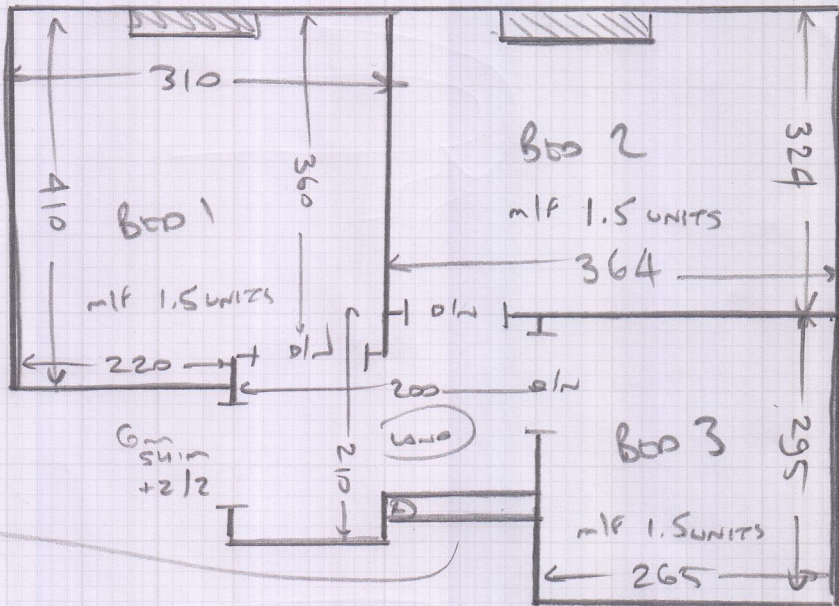 310
410
360
BED 1
m/f 1.5 UNITS
220
BED 2
m/f 1.5 UNITS
324
364
O/L
O/L
200
O/L
LAND
210
6m
+2/2
BED 3
295
m/f 1.5 UNITS
265